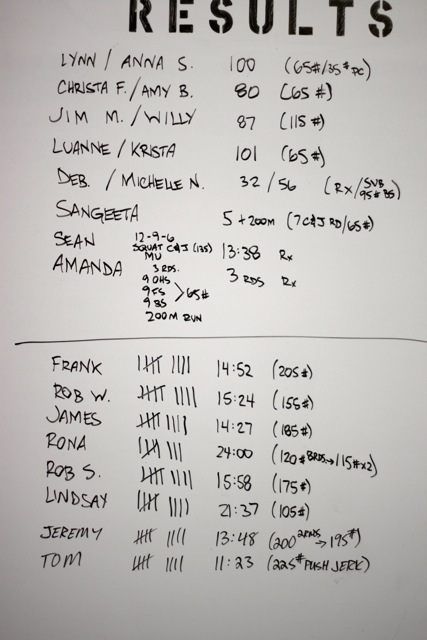 RESULTS
LYNN / ANNA S. 100 (65#/35# PC)
CHRISTA F./AMY B. 80 (65 #)
JIM M. / WILLY 87 (115 #)
LUANNE / KRISTA 101 (65#)
DEB. / MICHELLE N. 32 / 56 (RX/SUB 95# BS)
SANGEETA 5 + 200M (7 C&J RD/65#)
SEAN 12-9-6 SQUAT C&J (135) MU 13:38 Rx
AMANDA 3 RDS. 3 RDS Rx
9 OHS
9 FS > 65#
9 BS
200M RUN
FRANK 14:52 (205#)
ROB W. 15:24 (155#)
JAMES 14:27 (185#)
RONA 24:00 (120# 8RDS→/115#x2)
ROB S. 15:58 (175#)
LINDSAY 21:37 (105#)
JEREMY 13:48 (200 → 195#)
TOM 11:23 (225# PUSH JERK)